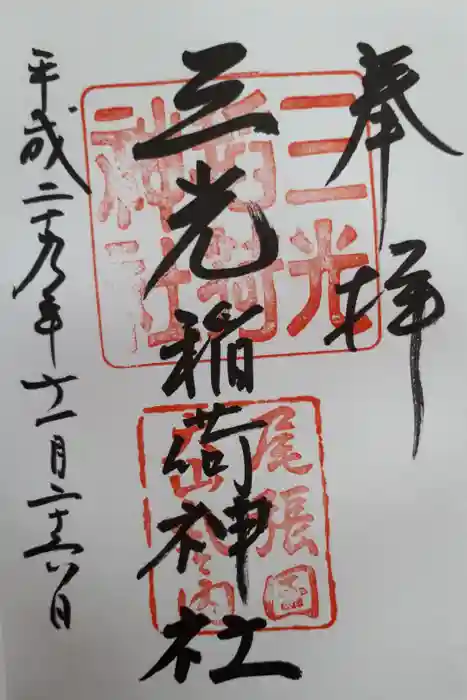 奉拝
三光稲荷神社
平成二十九年十一月二十六日
三光
稲荷
神社
尾張国